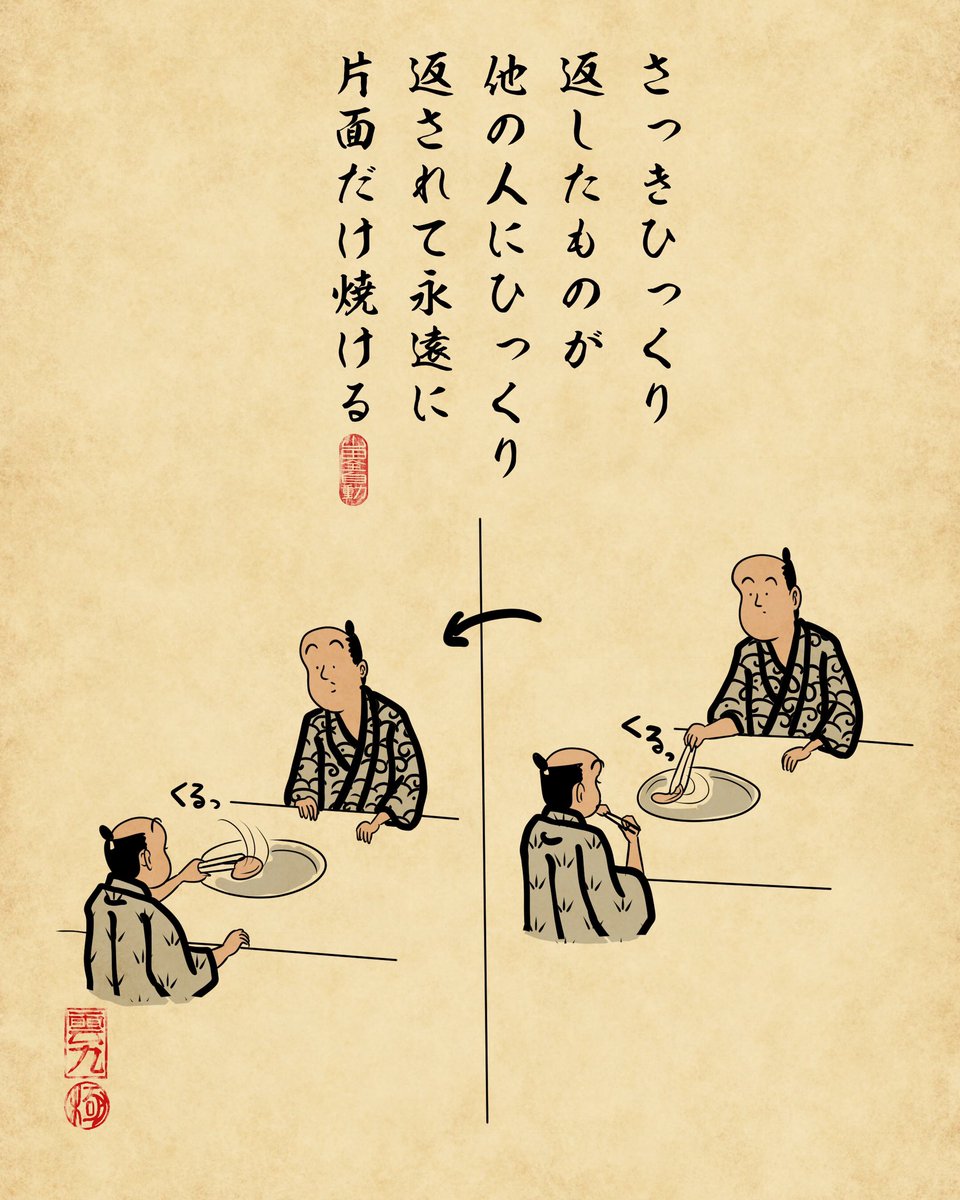 さっきひっくり
返したものが
他の人にひっくり
返されて永遠に
片面だけ焼ける
くるっ
くるっ